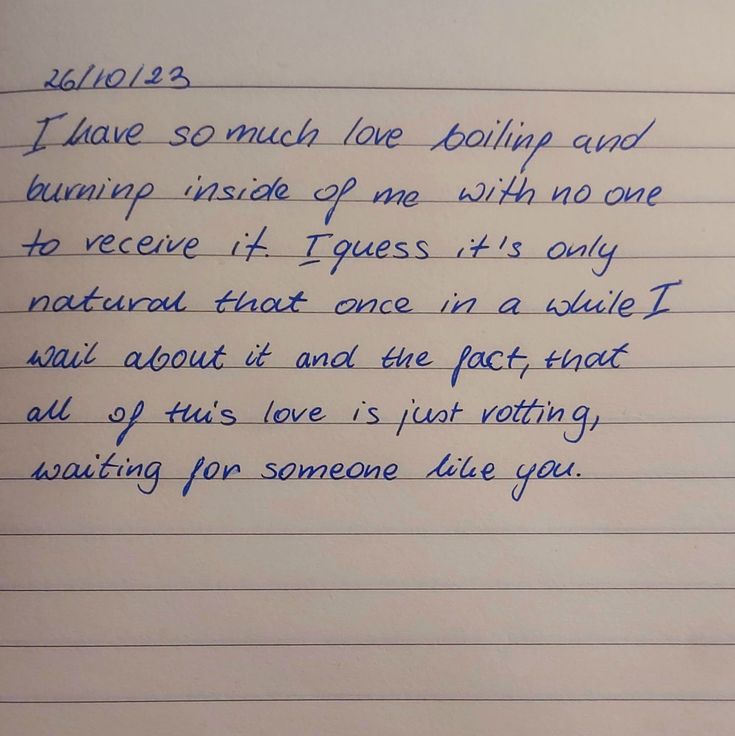 26/10/23
I have so much love boiling and
burning inside of me with no one
to receive it. I guess it's only
natural that once in a while I
wail about it and the fact, that
all of this love is just rotting,
waiting for someone like you.